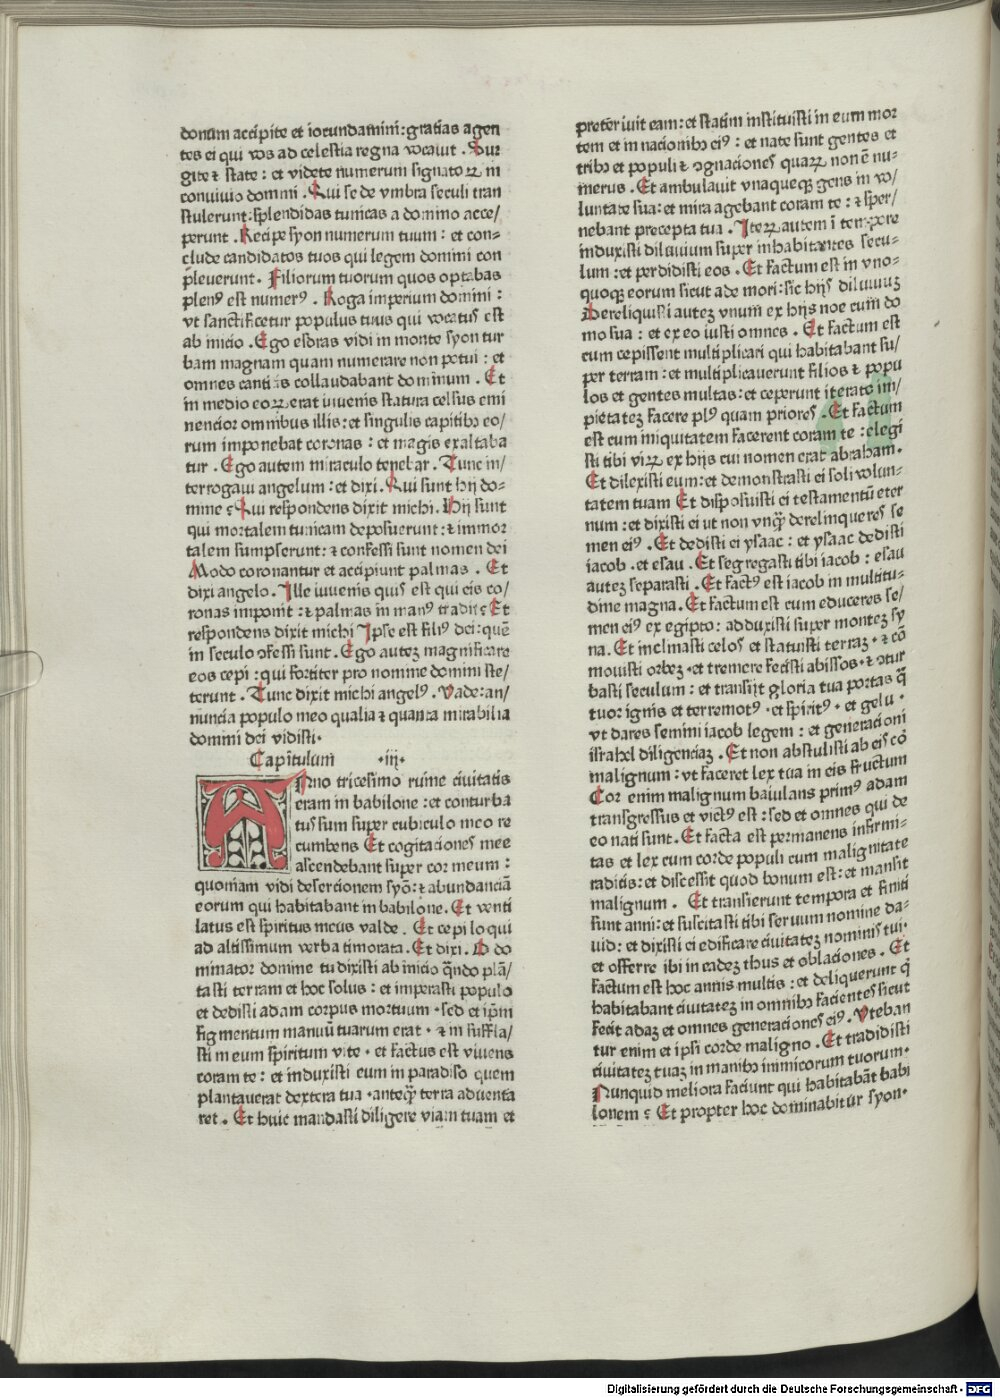 donum accipite et iocundamini: gratias agen
tes ei qui vos ad celestia regna vocavit . Sur
gite ⁊ state : et videte numerum signatoꝝ in
convivio domini . Qui se de vmbra seculi tran
stulerunt: splendidas tunicas a domino acce/
perunt . Recipe syon numerum tuum : et con-
clude candidatos tuos qui legem domini con
pleverunt . Filiorum tuorum quos optabas
plenꝰ est numerꝰ . Roga imperium domini :
vt sanctificetur populus tuus qui vocatus est
ab inicio . Ego esdras vidi in monte syon tur
bam magnam quam numerare non potui : et
omnes canticis collaudabant dominum . Et
in medio eoꝝ erat iuvenis statura celsus emi
nencior omnibus illis : et singulis capitibꝫ eo/
rum imponebat coronas : et magis exaltaba
tur . Ego autem miraculo tenebar . Tunc in/
terrogavi angelum : et dixi . Qui sunt hij do-
mine ? Qui respondens dixit michi . Hij sunt
qui mortalem tunicam deposuerunt : ⁊ immor
talem sumpserunt : ⁊ confessi sunt nomen dei
Modo coronantur et accipiunt palmas . Et
dixi angelo . Ille iuvenis quis est qui eis co/
ronas imponit : ⁊ palmas in manꝰ tradit ? Et
respondens dixit michi Ipse est filiꝰ dei : quē
in seculo ꝯfessi sunt . Ego auteꝫ magnificare
eos cepi : qui fortiter pro nomine domini ste/
terunt . Tunc dixit michi angelꝰ . Vade : an/
nuncia populo meo qualia ⁊ quanta mirabilia
domini dei vidisti .
Capitulum .iij.
Anno tricesimo ruine civitatis
eram in babilone : et conturba
tus sum super cubiculo meo re
cumbens Et cogitaciones mee
ascendebant super cor meum :
quoniam vidi desercionem syō : ⁊ abundanciā
eorum qui habitabant in babilone . Et venti
latus est spiritus meus valde . Et cepi loqui
ad altissimum verba timorata . Et dixi . O do
minator domine tu dixisti ab inicio qn̄do plā/
tasti terram et hoc solus : et imperasti populo
et dedisti adam corpus mortuum . sed et ipm̄
figmentum manuū tuarum erat . ⁊ in suffla/
sti in eum spiritum vite . et factus est vivens
coram te : et induxisti eum in paradiso quem
plantaverat dextera tua . anteqꝫ terra adventa
ret . Et huic mandasti diligere viam tuam et
preterivit eam : et statim instituisti in eum mor
tem et in nacionibꝫ eiꝰ : et nate sunt gentes et
tribꝫ et populi ⁊ ꝯgnaciones quaꝝ non ē nu-
merus . Et ambulavit vnaqueqꝫ gens in vo/
luntate sua : et mira agebant coram te : ⁊ sper/
nebant precepta tua . Iteꝝ autem ī tempore
induxisti diluvium super inhabitantes secu-
lum : et perdidisti eos . Et factum est in vno-
quoqꝫ eorum sicut ade mori : sic hijs diluviuꝫ
Dereliquisti auteꝫ vnum ex hijs noe cum do
mo sua : et ex eo iusti omnes . Et factum est
cum cepissent multiplicari qui habitabant su/
per terram : et multiplicaverunt filios ⁊ popu
los et gentes multas : et ceperunt iterato im/
pietateꝫ facere plꝰ quam priores . Et factum
est cum iniquitatem facerent coram te : elegi
sti tibi viꝝ ex hijs cui nomen erat abraham .
Et dilexisti eum : et demonstrasti ei soli volun-
tatem tuam Et disposuisti ei testamentū eter
num : et dixisti ei ut non vnqꝫ derelinqueres se
men eiꝰ . Et dedisti ei ysaac : et ysaac dedisti
iacob . et esau . Et segregasti tibi iacob : esau
auteꝫ separasti . Et factꝰ est iacob in multitu-
dine magna . Et factum est cum educeres se/
men eiꝰ ex egipto : adduxisti super monteꝫ sy
na . Et inclinasti celos et statuisti terraꝫ . ⁊ cō
movisti orbeꝫ . et tremere fecisti abissos . ⁊ ꝯtur
basti seculum : et transijt gloria tua portas q̄
tuor ignis et terremotꝰ . et spiritꝰ . et gelu .
vt dares semini iacob legem : et generacioni
israhel diligenciaꝫ . Et non abstulisti ab eis cō
malignum : vt faceret lex tua in eis fructum
Cor enim malignum baiulans primꝰ adam
transgressus et victꝰ est : sed et omnes qui de
eo nati sunt . Et facta est permanens infirmi-
tas et lex cum corde populi cum malignitate
radicis : et discessit quod bonum est : et mansit
malignum . Et transierunt tempora et finiti
sunt anni : et suscitasti tibi servum nomine da-
vid : et dixisti ei edificare civitateꝫ nominis tui .
et offerre ibi in eadeꝫ thus et oblaciones . Et
factum est hoc annis multis : et deliquerunt q̄
habitabant civitateꝫ in omnibꝫ facientes sicut
fecit adaꝫ et omnes generaciones eiꝰ . Vteban
tur enim et ipsi corde maligno . Et tradidisti
civitateꝫ tuaꝫ in manibꝫ inimicorum tuorum .
Nunquid meliora faciunt qui habitabāt babi
lonem ? Et propter hoc dominabitur syon .
Digitalisierung gefördert durch die Deutsche Forschungsgemeinschaft - DFG